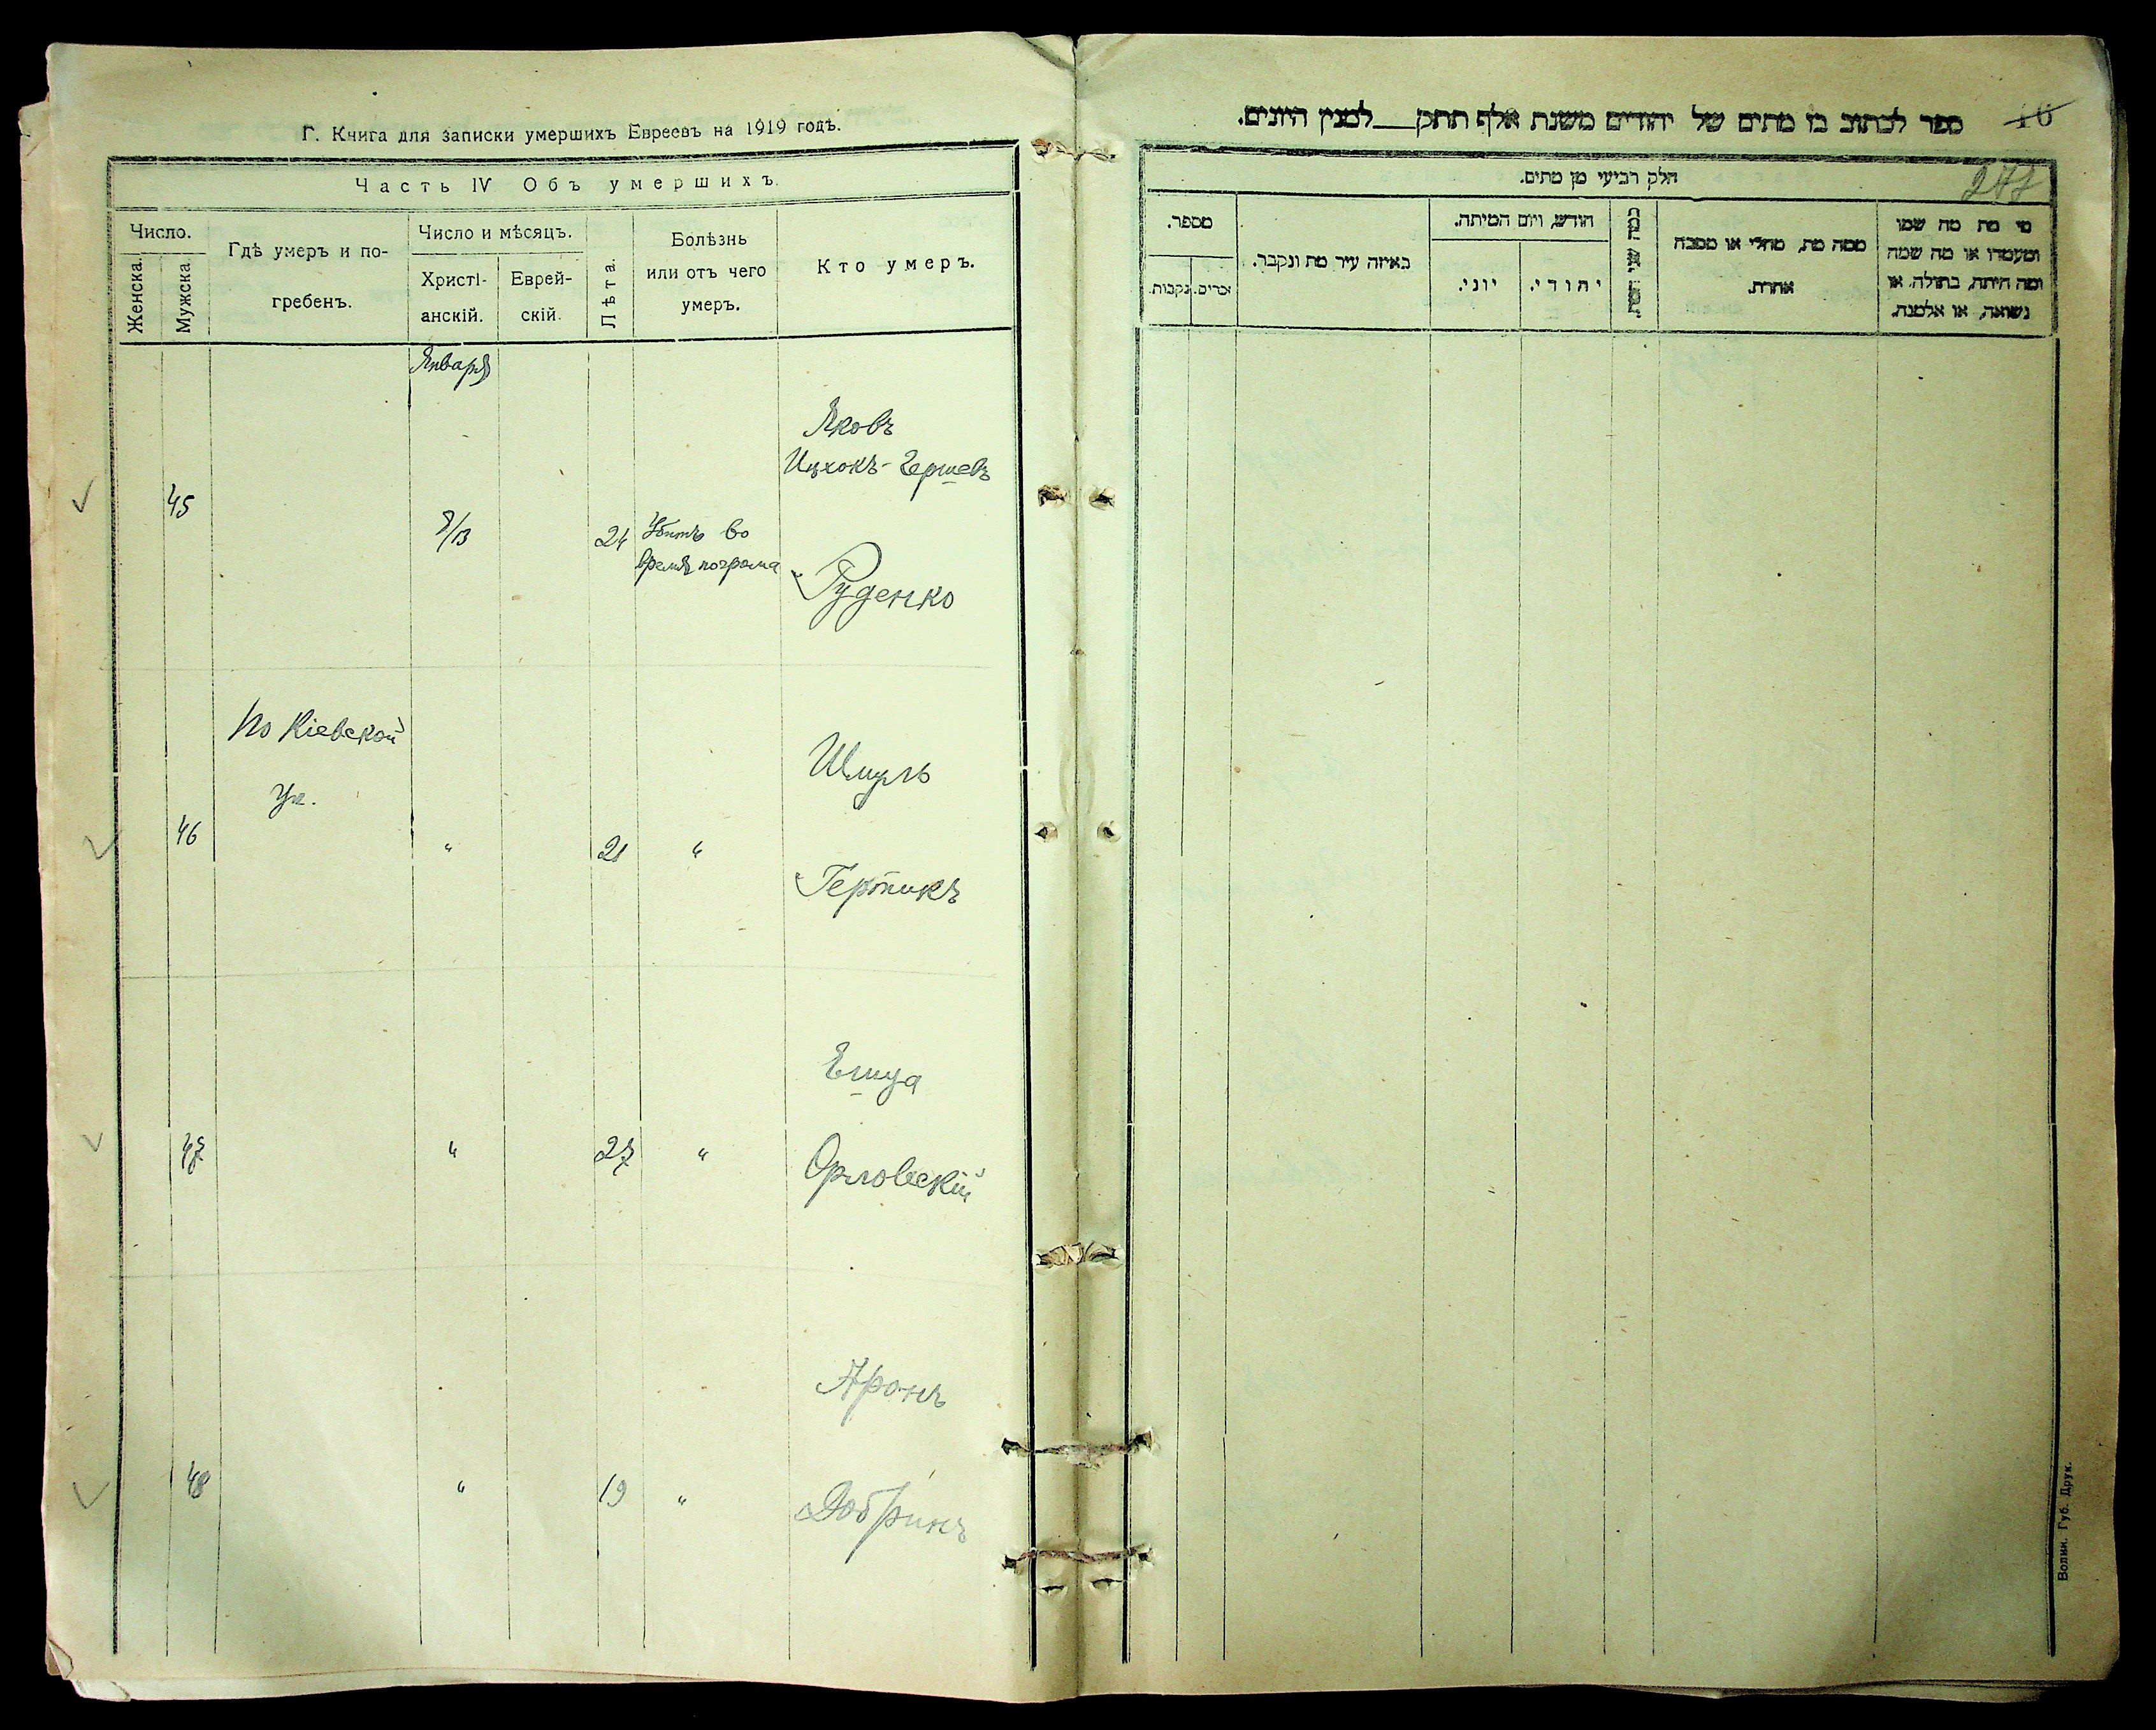 Г. Книга для записки умершихъ Евреевъ на 1919 годъ.
Часть IV Объ умершихъ.
Число.
Женска.
Мужска.
Гдѣ умеръ и по-
гребенъ.
Число и мѣсяцъ.
Христі-
анскій.
Еврей-
скій.
Лѣта.
Болѣзнь
или отъ чего
умеръ.
Кто умеръ.
Января
45
Яковъ
Ицхокъ-Гершевъ
24
Убитъ во
время погрома
Руденко
По Кіевской
ул.
46
"
21
"
Шмуль
Гертикъ
47
"
27
"
Ешуа
Орловскій
48
"
19
"
Аронъ
Добринъ
ספר לכתוב בו מתים של יהודים משנת אלף תתק___למנין היונים.
10
277
חלק רביעי מן מתים.
מספר.
זכרים.
נקבות.
באיזה עיר מת ונקבר.
חודש, ויום המיתה.
יוני.
יהודי.
ממה מת, מחלי או מסבה
אחרת.
מי מת מה שמו
ומעמדו או מה שמה
ומה היתה, בתולה, או
נשואה, או אלמנה.
Волин. Губ. Друк.